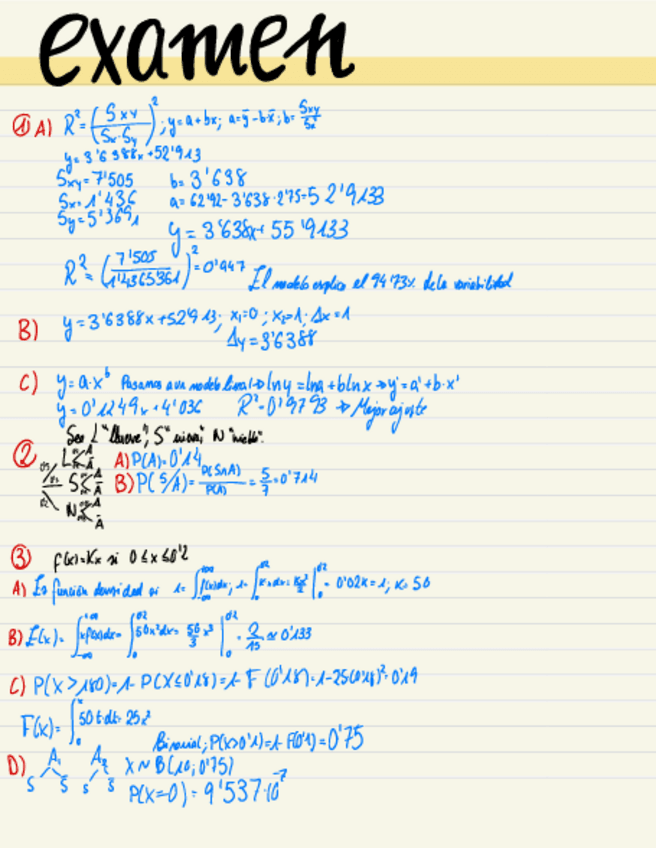 examen
① A) R² = (Sxy / Sx·Sy)² ; y = a + bx ; a = ȳ - bx̄ ; b = Sxy / Sx
y = 3'6388x + 52'913
Sxy = 7'505 b = 3'638
Sx = 1'436 a = 62'92 - 3'638 · 2'75 = 52'9133
Sy = 5'3691
y = 3'638x + 55'9133
R² = (7'505 / 1'4365'361)² = 0'947 El modelo explica el 94'73% de la variabilidad
B) y = 3'6388x + 52'913; x₁=0 ; x₂=1 ; Δx = 1
Δy = 3'6388
C) y = a·x^b Pasamos a un modelo lineal → ln y = ln a + b ln x → y' = a' + b·x'
y = 0'1249x + 4'036 R² = 0'9793 → Mejor ajuste
Sea L "llueve", S" N "niebla".
② L A Ā A) P(A) = 0'14
S A Ā B) P(S/A) = P(S∩A) / P(A) = 5/7 = 0'714
N A Ā
③ f(x) = Kx si 0 ≤ x ≤ 0'2
A) Es función densidad si 1 = ∫ f(x)dx ; 1 = ∫ Kx dx = Kx²/2 | = 0'02K = 1; K = 50
B) E(x) = ∫ x f(x)dx = ∫ 50x² dx = 50/3 x³ | = 2/15 ≃ 0'133
C) P(X > 180) = 1 - P(X ≤ 0'18) = 1 - F(0'18) = 1 - 25(0'18)² = 0'19
F(x) = ∫ 50t dt = 25x²
Binomial; P(X>0'1) = 1 - F(0'1) = 0'75
D) A₁ A₂ X ~ B(10; 0'75)
S S̄ S S̄ P(X=0) = 9'537·10⁻⁷